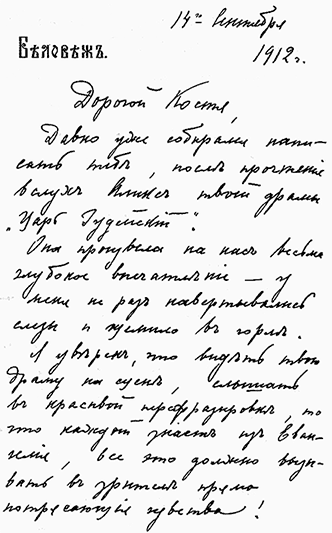 14го Сентября
Бѣловѣжъ.
1912 г.
Дорогой Костя,
Давно уже собирался напи-
сать тебѣ, послѣ прочтенія
вслухъ Аликсъ твоей драмы
„Царь Іудейскій“.
Она произвела на насъ весьма
глубокое впечатлѣніе — у
меня не разъ навертывались
слезы и щемило въ горлѣ.
Я увѣренъ, что видѣть твою
драму на сценѣ, слышать
въ красивой перефразировкѣ, то
что каждый знаетъ изъ Еван-
гелія, все это должно вызы-
вать въ зрителѣ прямо
потрясающія чувства!